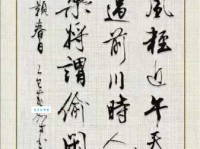 風輕近午天
過前川時人
樂將謂偷閑
顥春日